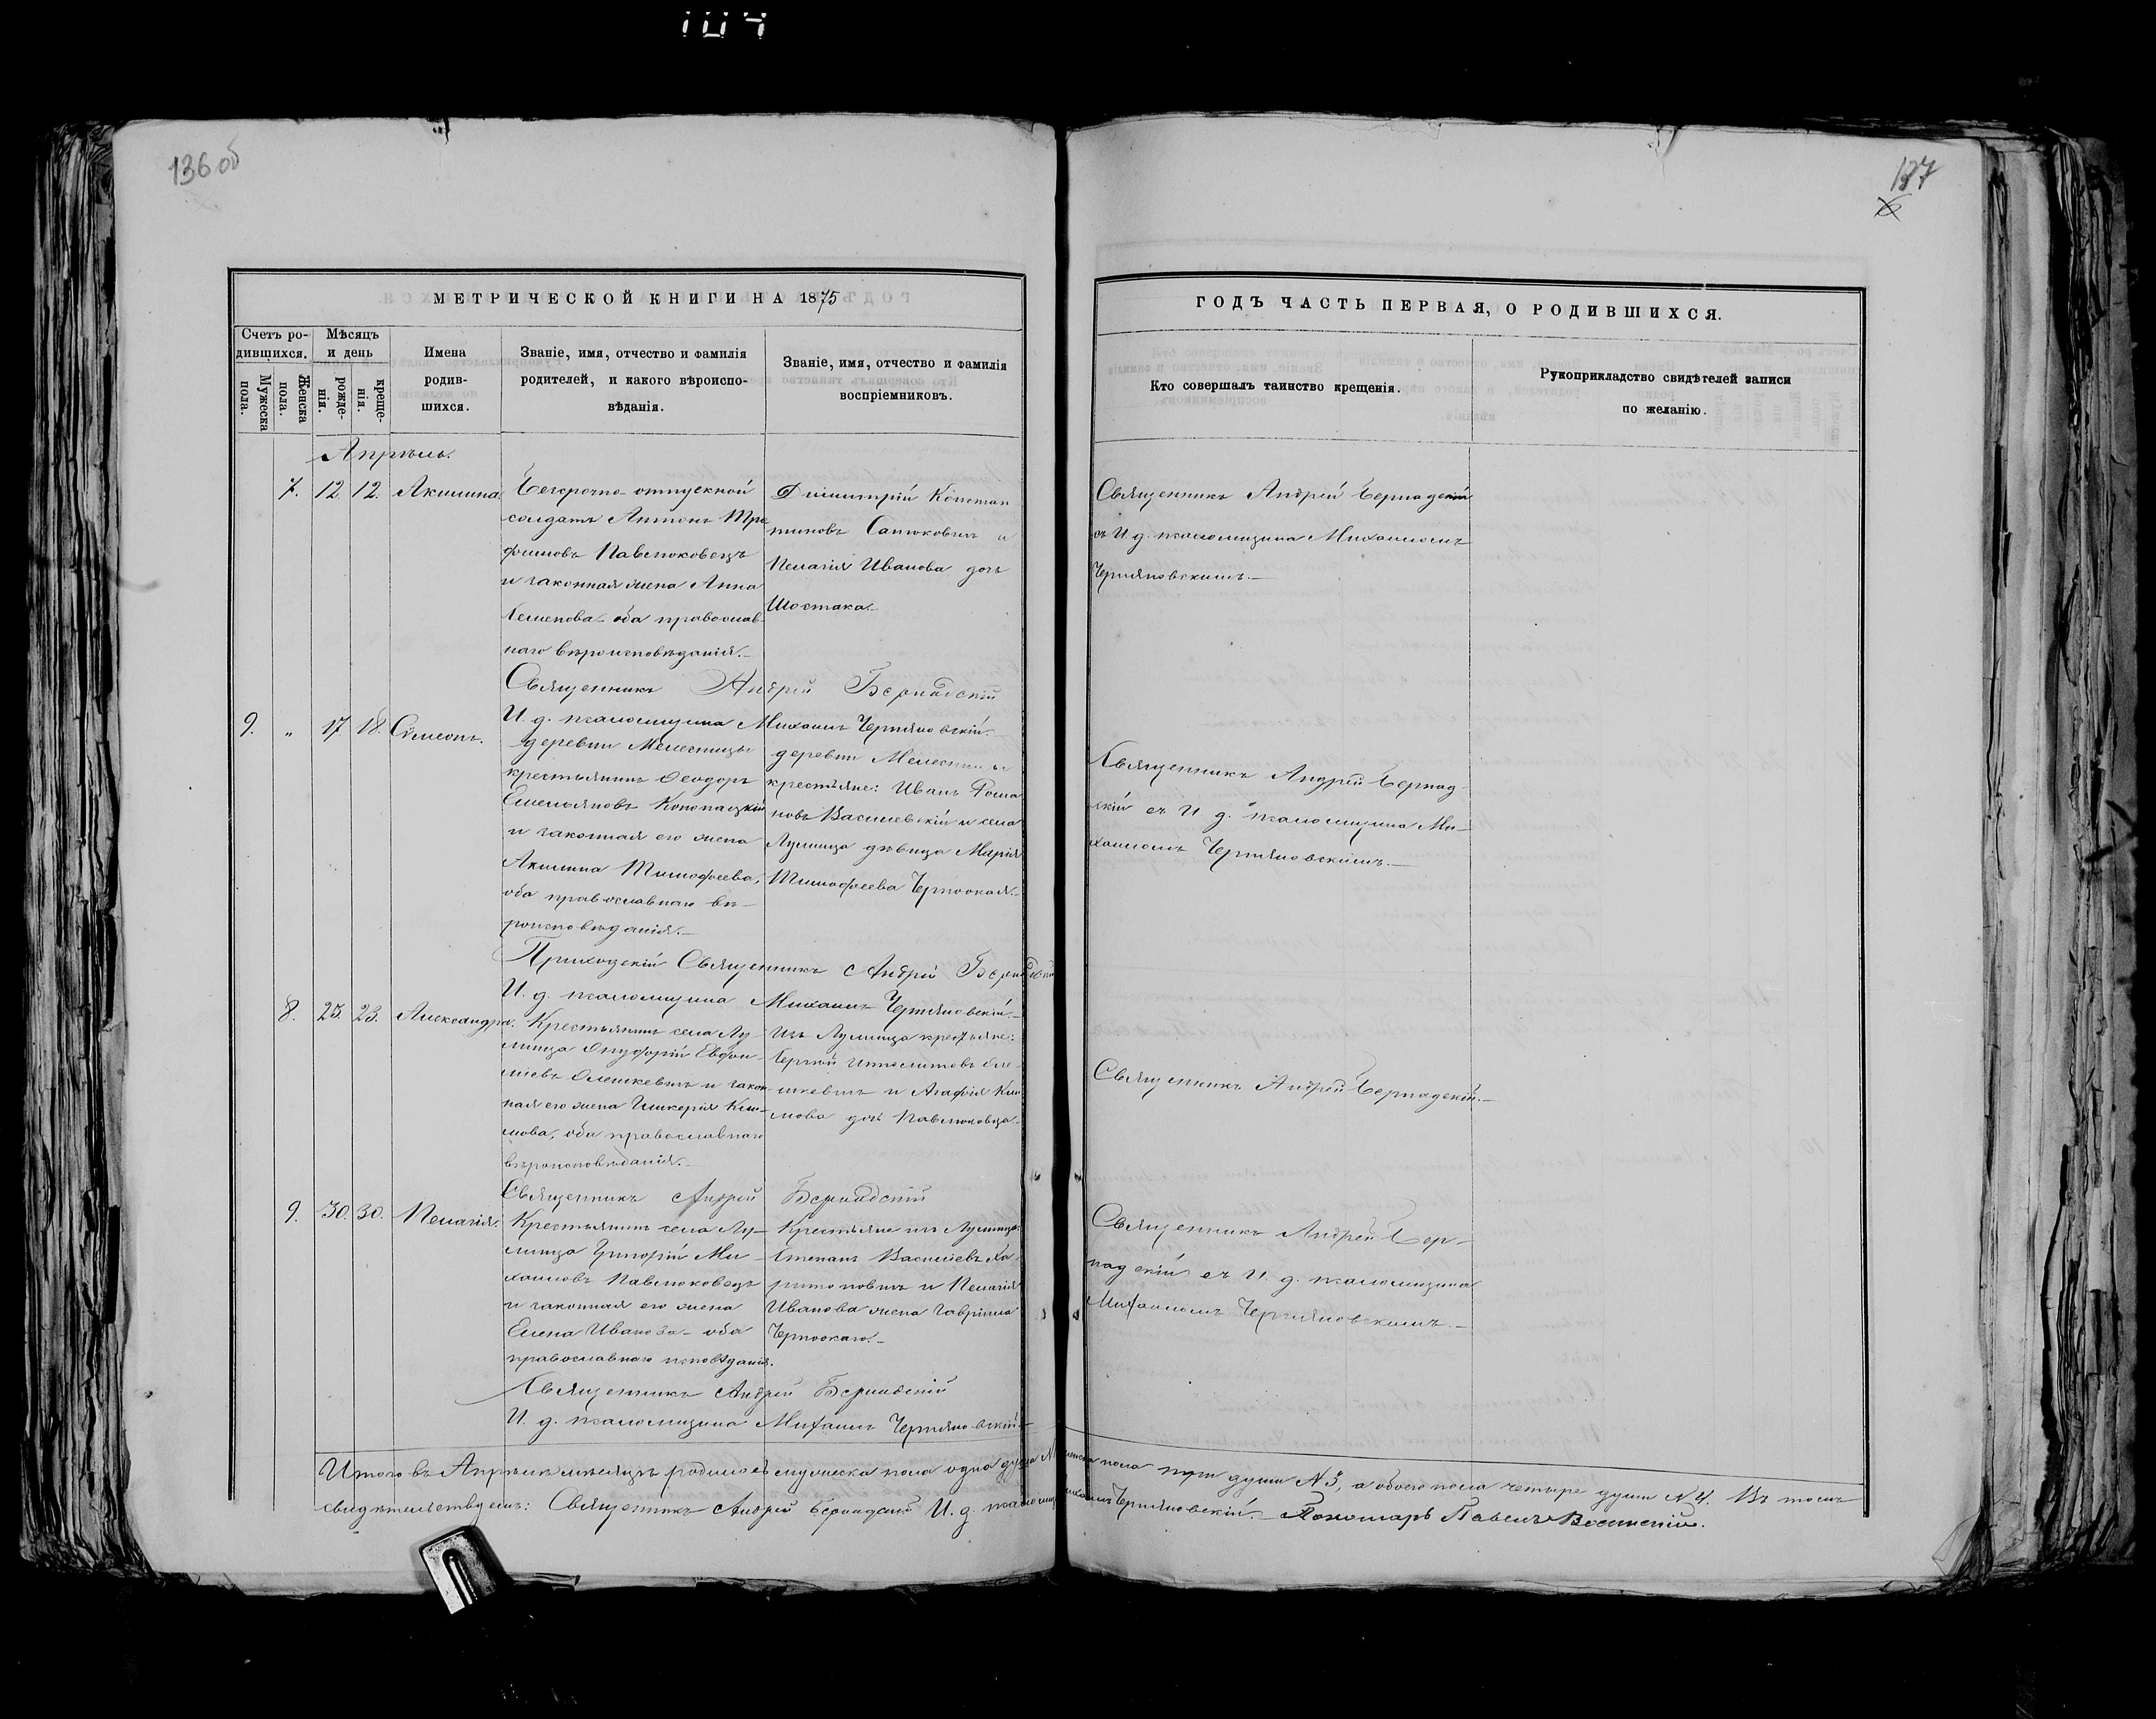 136 об
137
6
МЕТРИЧЕСКОЙ КНИГИ НА 1875
ГОДЪ ЧАСТЬ ПЕРВАЯ, О РОДИВШИХСЯ.
Счетъ ро-
дившихся.
Мужеска
пола.
Женска
пола.
Мѣсяцъ
и день
рожде-
нія.
креще-
нія.
Имена
родив-
шихся.
Званіе, имя, отчество и фамилія
родителей, и какого вѣроиспо-
вѣданія.
Званіе, имя, отчество и фамилія
воспріемниковъ.
Кто совершалъ таинство крещенія.
Рукоприкладство свидѣтелей записи
по желанію.
Апрѣль.
7. 12. 12. Акилина.
Безсрочно-отпускной
солдатъ Антонъ Тро
фимовъ Павлюковецъ
и законная жена Анна
Семенова оба православ
наго вѣроисповѣданія.
Димитрій Констан
тиновъ Санюковичъ и
Пелагія Иванова дочь
Шостака.
Священникъ Андрей Бернадскій
съ И. д. псаломщика Михаиломъ
Черняковскимъ.
Священникъ Андрей Бернадскій
И. д. псаломщика Михаилъ Черняковскій.
9. „ 17. 18. Симеонъ.
деревни Мелесницы
крестьянинъ Ѳеодоръ
Емельяновъ Конопацкій
и законная его жена
Акилина Тимофеева,
оба православнаго вѣ-
роисповѣданія.
деревни Мелесницы
крестьяне: Иванъ Рома
новъ Василевскій и села
Лумница дѣвица Марія
Тимофеева Черноокая.
Священникъ Андрей Бернад-
скій съ И. д. псаломщика Ми-
хаиломъ Черняковскимъ.
Приходскій Священникъ Андрей Бернадскій
И. д. псаломщика Михаилъ Черняковскій.
8. 23. 23. Александра.
Крестьянинъ села Лу-
мница Онуфрій Евфи-
міевъ Олешкевичъ и закон
ная его жена Гликерія Кли-
мова, оба православнаго
вѣроисповѣданія.
Изъ Лумница крестьяне:
Сергѣй Ипполитовъ Оле-
шкевичъ и Агафія Кли
мова дочь Павлюковца.
Священникъ Андрей Бернадскій.
Священникъ Андрей Бернадскій
9. 30. 30. Пелагія.
Крестьянинъ села Лу-
мница Григорій Ми-
хаиловъ Павлюковецъ
и законная его жена
Елена Иванова оба
православнаго исповѣданія.
Крестьяне изъ Лумница:
Степанъ Василіевъ Ха-
ритоновичъ и Пелагія
Иванова жена Гавріила
Черноокаго.
Священникъ Андрей Бер-
надскій съ И. д. псаломщика
Михаиломъ Черняковскимъ.
Священникъ Андрей Бернадскій
И. д. псаломщика Михаилъ Черняковскій.
Итого въ Апрѣлѣ мѣсяцѣ родилось мужеска пола одна душа женска пола три души №3, а обоего пола четыре души №4. Въ томъ
свидѣтельствуемъ: Священникъ Андрей Бернадскій И. д. псаломщ Михаилъ Черняковскій. Пономарь Павелъ